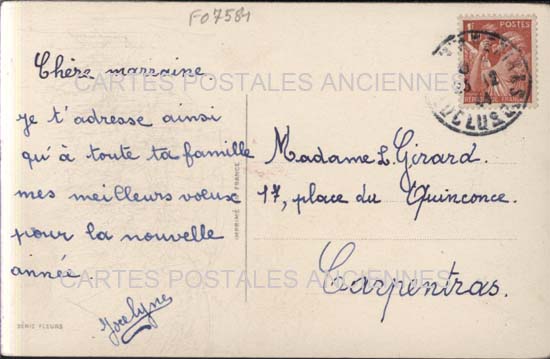 F07584
Chère marraine.
je t'adresse ainsi
qu'à toute ta famille
mes meilleurs voeux
pour la nouvelle
année.
Jocelyne
SÉRIE FLEURS
IMPRIMÉ EN FRANCE
POSTES
1F
Madame L. Girard.
17, place du Quinconce.
Carpentras.
CARTES POSTALES ANCIENNES
CARTES POSTALES ANCIENNES